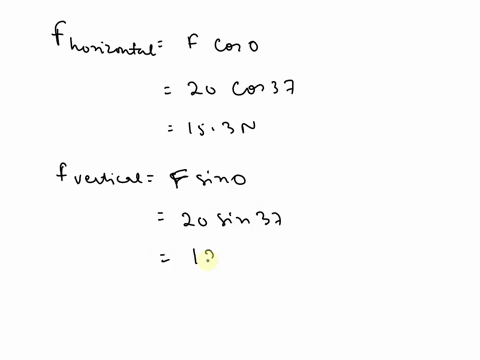 f horizontal = F cos θ
= 20 cos 37
= 15.3 N
f vertical = F sin θ
= 20 sin 37
= 1